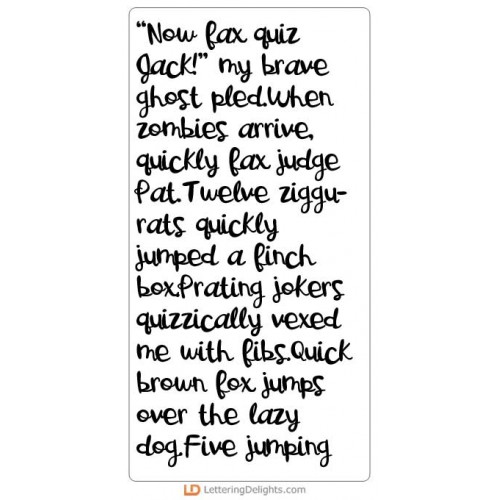 “Now fax quiz
Jack!” my brave
ghost pled.When
zombies arrive,
quickly fax judge
Pat.Twelve ziggu-
rats quickly
jumped a finch
box.Prating jokers
quizzically vexed
me with fibs.Quick
brown fox jumps
over the lazy
dog.Five jumping
LD LetteringDelights.com